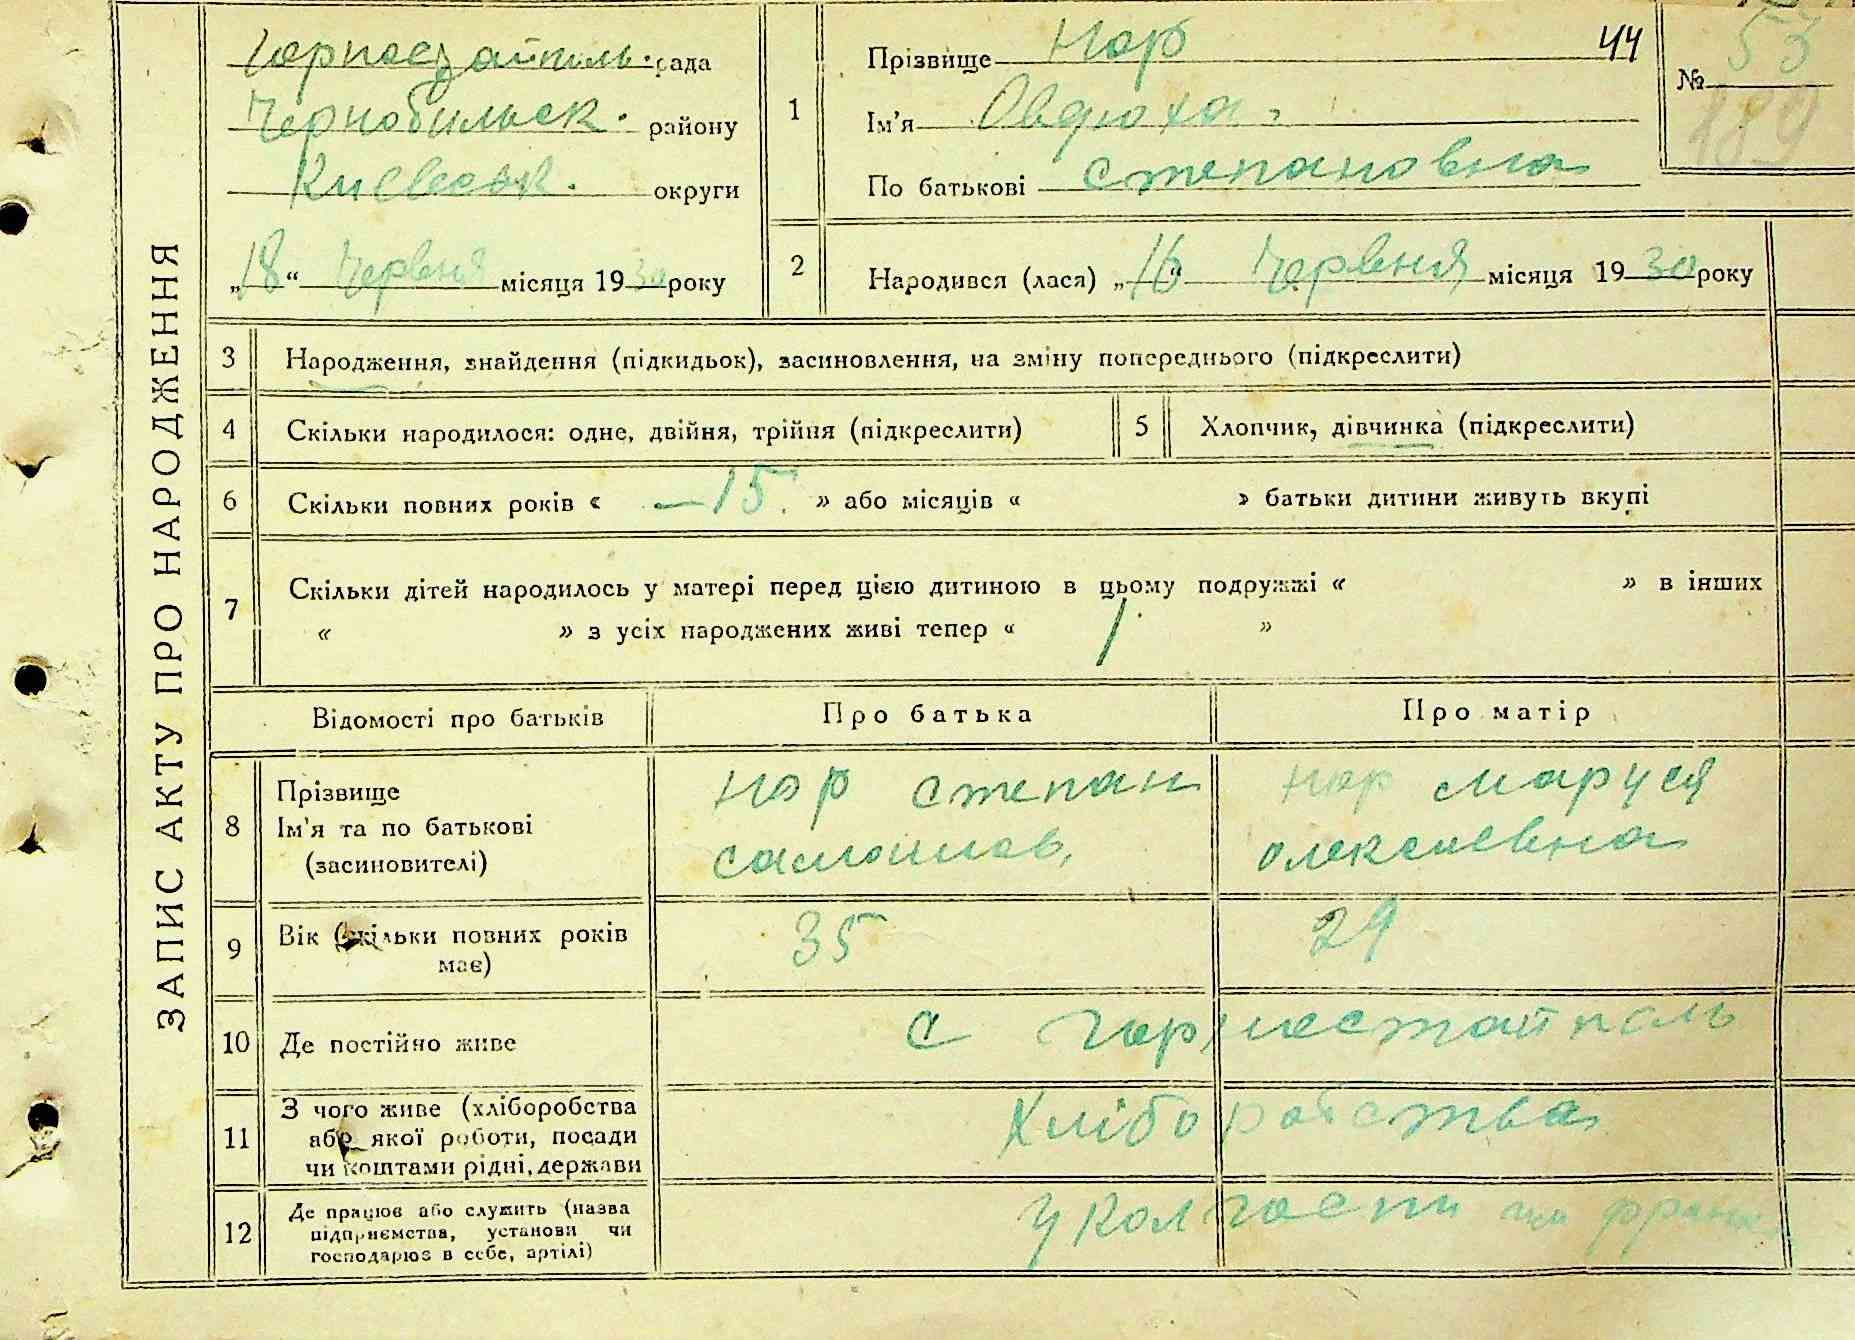 ЗАПИС АКТУ ПРО НАРОДЖЕННЯ
Горностайпіль. рада
Чернобильск. району
Киевськ. округи
„18“ Червня місяця 1930 року
1
Прізвище Нор 44
Ім'я Овдюха
По батькові Степановна
№ 53
189
2 Народився (лася) „16“ Червня місяця 1930 року
3 Народження, знайдення (підкидьок), засиновлення, на зміну попереднього (підкреслити)
4 Скільки народилося: одне, двійня, трійня (підкреслити)
5 Хлопчик, дівчинка (підкреслити)
6 Скільки повних років « —15. » або місяців « » батьки дитини живуть вкупі
7 Скільки дітей народилось у матері перед цією дитиною в цьому подружжі « » в інших
« » з усіх народжених живі тепер « 1 »
Відомості про батьків Про батька Про матір
8 Прізвище
Ім'я та по батькові
(засиновителі)
Нор Степан
Самоилов,
Нор Маруся
Олексиевна
9 Вік (скільки повних років
має)
35 29
10 Де постійно живе с Горностайпіль
11 З чого живе (хліборобства
або якої роботи, посади
чи коштами рідні, держави
Хліборобства
12 Де працює або служить (назва
підприємства, установи чи
господарює в себе, артілі)
У колгоспи им Франка